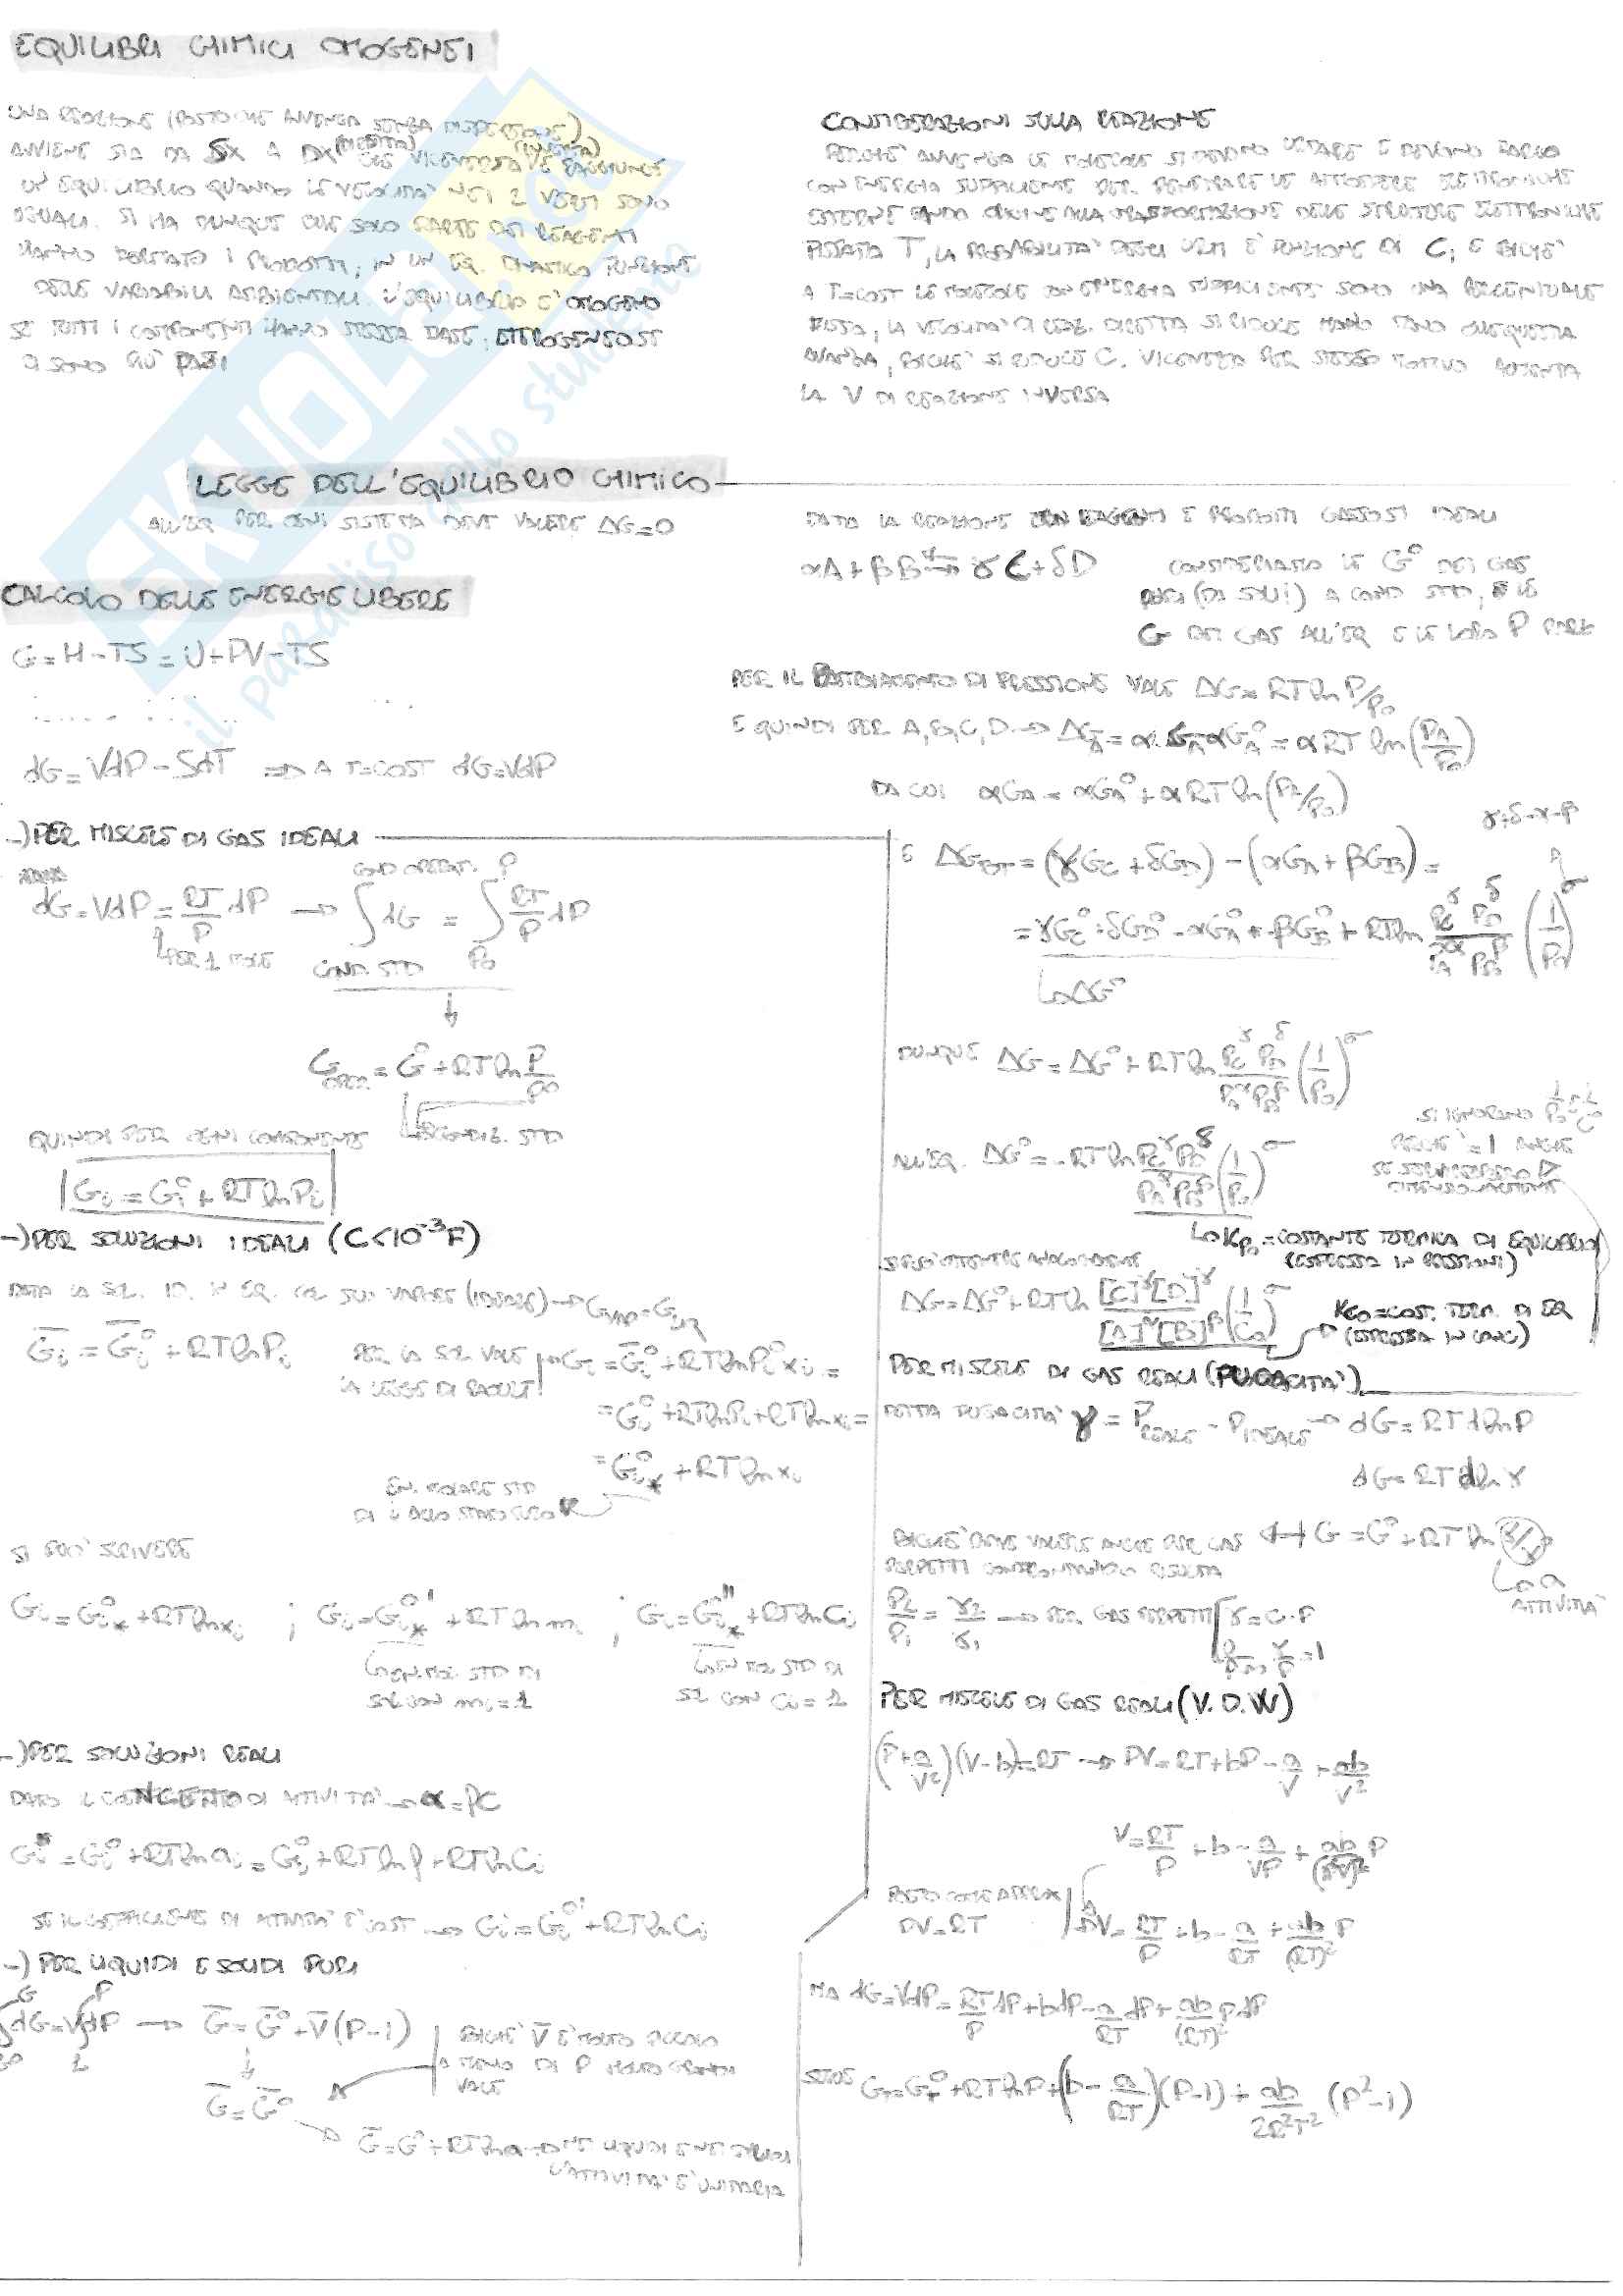 EQUILIBRI CHIMICI OMOGENEI
UNA REAZIONE (POSTO CHE AVVENGA SENZA DISPERSIONE)
AVVIENE SIA DA SX A DX (DIRETTA) CHE VICEVERSA (INVERSA) E RAGGIUNGE
UN EQUILIBRIO QUANDO LE VELOCITA' NEI 2 VERSI SONO
UGUALI. SI HA DUNQUE CHE SOLO PARTE DEI REAGENTI
HANNO FORMATO I PRODOTTI, IN UN EQ. DINAMICO FUNZIONE
DELLE VARIABILI AMBIENTALI. L'EQUILIBRIO E' OMOGENEO
SE TUTTI I COMPONENTI HANNO STESSA FASE, ETEROGENEO SE
CI SONO PIÚ FASI
CONSIDERAZIONI SULLA REAZIONE
PERCHE' AVVENGA LE MOLECOLE SI DEVONO URTARE E DEVONO FARLO
CON ENERGIA SUFFICIENTE PER PENETRARE LE ATMOSFERE ELETTRONICHE
ESTERNE DANDO ORIGINE ALLA TRASFORMAZIONE DELLE STRUTTURE ELETTRONICHE
FISSATA T, LA PROBABILITA' DEGLI URTI E' FUNZIONE DI C; E POICHE'
A T=COST LE MOLECOLE CON ENERGIA SUFFICIENTE SONO UNA PERCENTUALE
FISSA, LA VELOCITA' DI REAZ. DIRETTA SI RIDUCE MANO MANO CHE QUESTA
AVANZA, POICHE' SI RIDUCE C. VICEVERSA PER STESSO MOTIVO AUMENTA
LA V DI REAZIONE INVERSA
LEGGE DELL'EQUILIBRIO CHIMICO
ALL'EQ PER OGNI SISTEMA DEVE VALERE ΔG=0
CALCOLO DELLE ENERGIE LIBERE
G=H-TS=U+PV-TS
dG=VdP-SdT => A T=COST dG=VdP
-) PER MISCELE DI GAS IDEALI
dG=VdP=RT/P dP → ∫dG = ∫RT/P dP
PER 1 MOLE COND. STD P₀
G = G° + RT ln P/P₀
QUINDI PER OGNI COMPONENTE
Gi = Gi° + RT ln Pi
-) PER SOLUZIONI IDEALI (C<10⁻³F)
DATA LA SOL. ID. IN EQ. COL SUO VAPORE (IDEALE)
Gi = Gi° + RT ln Pi
PER LA SOL VALE
LA LEGGE DI RAOULT
Gi = Gi° + RT ln Pi° xi =
= Gi° + RT ln Pi + RT ln xi =
= Gi*° + RT ln xi
EN. MOLARE STD
DI i ALLO STATO PURO
SI PUO' SCRIVERE
Gi = Gi*° + RT ln xi ; Gi = Gi*°' + RT ln mi ; Gi = Gi*°'' + RT ln Ci
EN. MOL. STD DI
SOL CON mi=1
EN MOL STD DI
SOL CON Ci=1
-) PER SOLUZIONI REALI
DATO IL DI ATTIVITA' → α=fC
Gi = Gi° + RT ln ai = Gi° + RT ln f + RT ln Ci
SE IL COEFFICIENTE DI ATTIVITA' E' COST → Gi = Gi°' + RT ln Ci
-) PER LIQUIDI E SOLIDI PURI
∫dG=V∫dP → G = G° + V(P-1)
POICHE' V E' MOLTO PICCOLO
A MENO DI P MOLTO GRANDI
VALE
G = G°
G = G° + RT ln a → NEI LIQUIDI E NEI SOLIDI
L'ATTIVITA' E' UNITARIA
DATA LA REAZIONE CON REAGENTI E PRODOTTI GASSOSI IDEALI
αA+βB ⇌ γC+δD
CONSIDERIAMO LE G° DEI GAS
PURI (DA SOLI!) A COND STD, E LE
G DEI GAS ALL'EQ E LE LORO P PARZ
PER IL CAMBIAMENTO DI PRESSIONE VALE ΔG=RT ln P/P₀
E QUINDI PER A, B, C, D → ΔG = αGA-αGA° = αRT ln (PA/P₀)
DA CUI αGA = αGA° + αRT ln (PA/P₀)
γ+δ-α-β
E ΔG = (γGC+δGD) - (αGA+βGB) =
= γGC° + δGD° - αGA° + βGB° + RT ln PC^γ PD^δ / PA^α PB^β (1/P₀)^σ
ΔG°
DUNQUE ΔG = ΔG° + RT ln PC^γ PD^δ / PA^α PB^β (1/P₀)^σ
SI IGNORANO 1/P₀ 1/C₀
PERCHE' =1 ANCHE
ALL'EQ. ΔG° = -RT ln PC^γ PD^δ / PA^α PB^β (1/P₀)^σ
KP₀=COSTANTE TERMICA DI EQUILIBRIO
(ESPRESSA IN PRESSIONI)
ΔG = ΔG° + RT ln [C]^γ[D]^γ / [A]^α[B]^β (1/C₀)^σ
KC₀=COST. TERM. DI EQ
(ESPRESSA IN CONC)
PER MISCELE DI GAS REALI (FUGACITA')
DETTA FUGACITA' γ = P REALE - P IDEALE → dG = RT dln P
dG = RT dln γ
POICHE' DEVE VALERE ANCHE PER GAS G = G° + RT ln
PERFETTI RISULTA
a
ATTIVITA'
P2/P1 = γ2/γ1 → PER GAS PERFETTI γ = C·P
γ/P=1
PER MISCELE DI GAS REALI (V.D.W)
(P+a/V²)(V-b)=RT → PV=RT+bP-a/V+ab/V²
V=RT/P+b-a/VP+ab/(PV)² P
POSTO COME APPROX
PV=RT
V=RT/P+b-a/RT+ab/(RT)² P
MA dG=VdP=RT/P dP+bdP-a/RT dP+ab/(RT)² PdP
G = G° + RT ln P+(b-a/RT)(P-1)+ab/2R²T² (P²-1)
SKUOLA.net
il paradiso dello studente